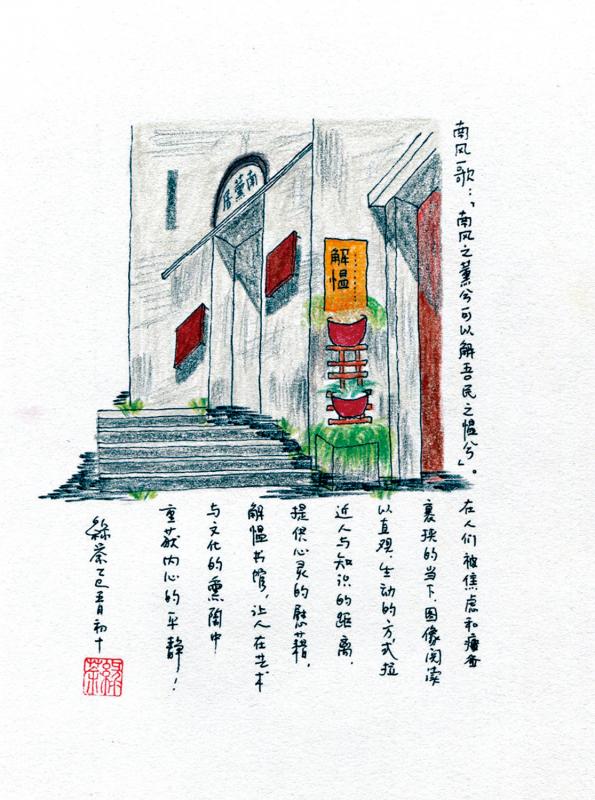 南风歌:“南风之薰兮可以解吾民之愠兮”。
在人们被焦虑和疲惫
裹挟的当下,图像阅读
以直观、生动的方式拉
近人与知识的距离,
提供心灵的慰藉。
解愠书馆,让人在艺术
与文化的熏陶中
重获内心的平静!
乙巳五月初十
南薰居
解愠